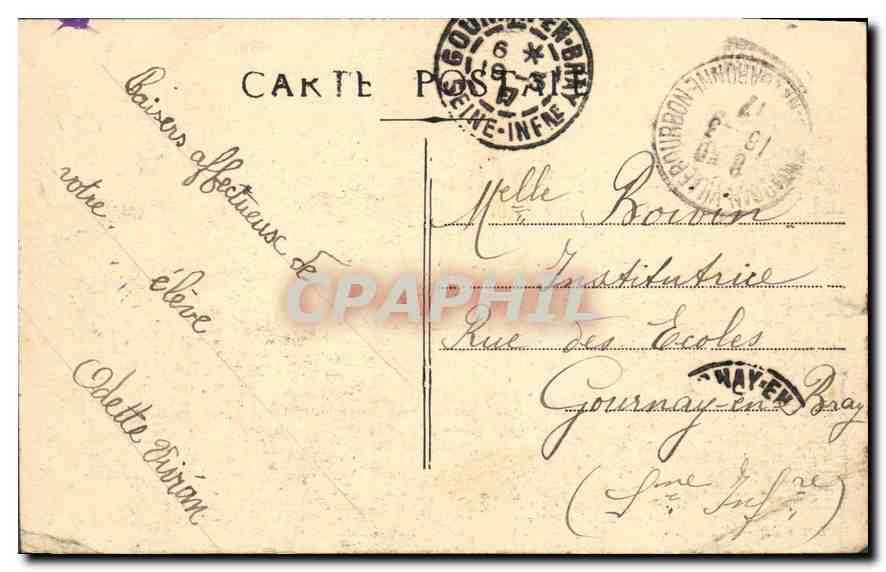 CARTE POSTALE
Baisers affectueux de
votre élève
Odette
Melle Boivin
Institutrice
Rue des Ecoles
Gournay-en-Bray
(Sne Infre)
GOURNAY-EN-BRAY
6 *
19-3
17
SEINE-INFRE
BOURBON
18 -3
17
NAY-EN
CPAPHIL